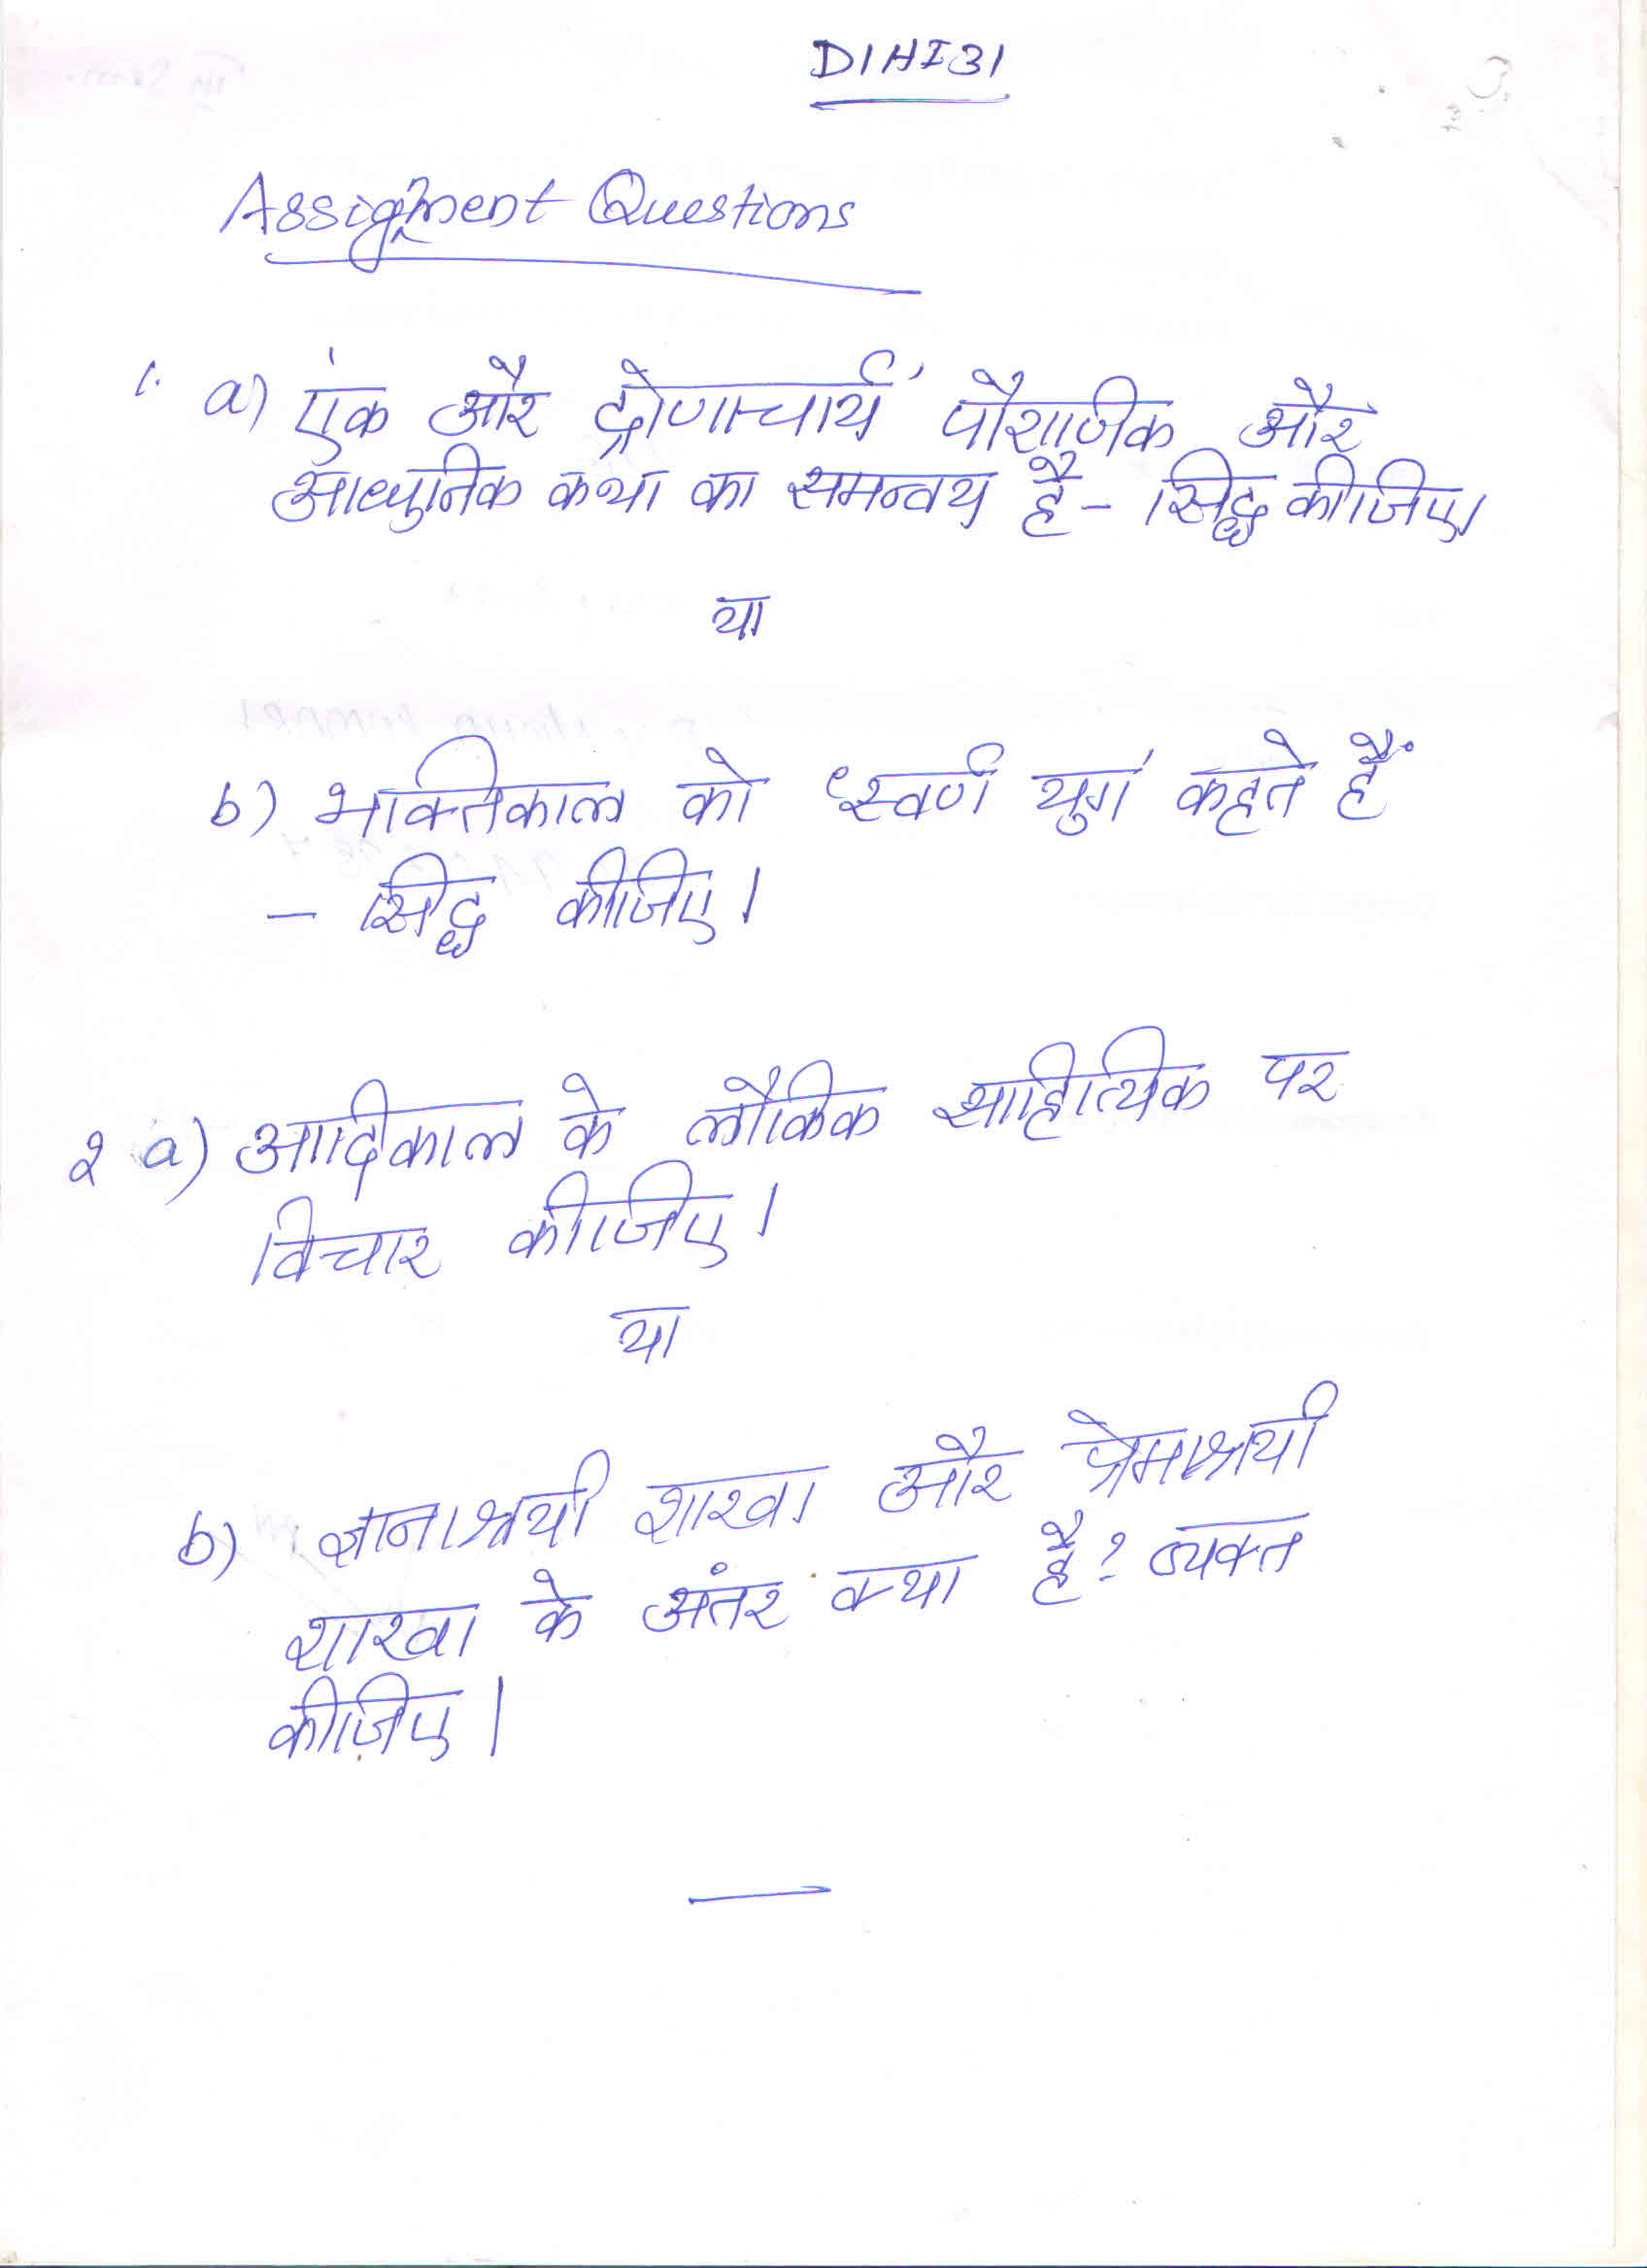 D1HI31
Assignment Questions
1. a) 'एक और द्रोणाचार्य' पौराणिक और
आधुनिक कथा का समन्वय है - सिद्ध कीजिए।
या
b) भक्तिकाल को 'स्वर्ण युग' कहते हैं
- सिद्ध कीजिए।
2 a) आदिकाल के लौकिक साहित्यिक पर
विचार कीजिए।
या
b) ज्ञानाश्रयी शाखा और प्रेमाश्रयी
शाखा के अंतर क्या है? व्यक्त
कीजिए।